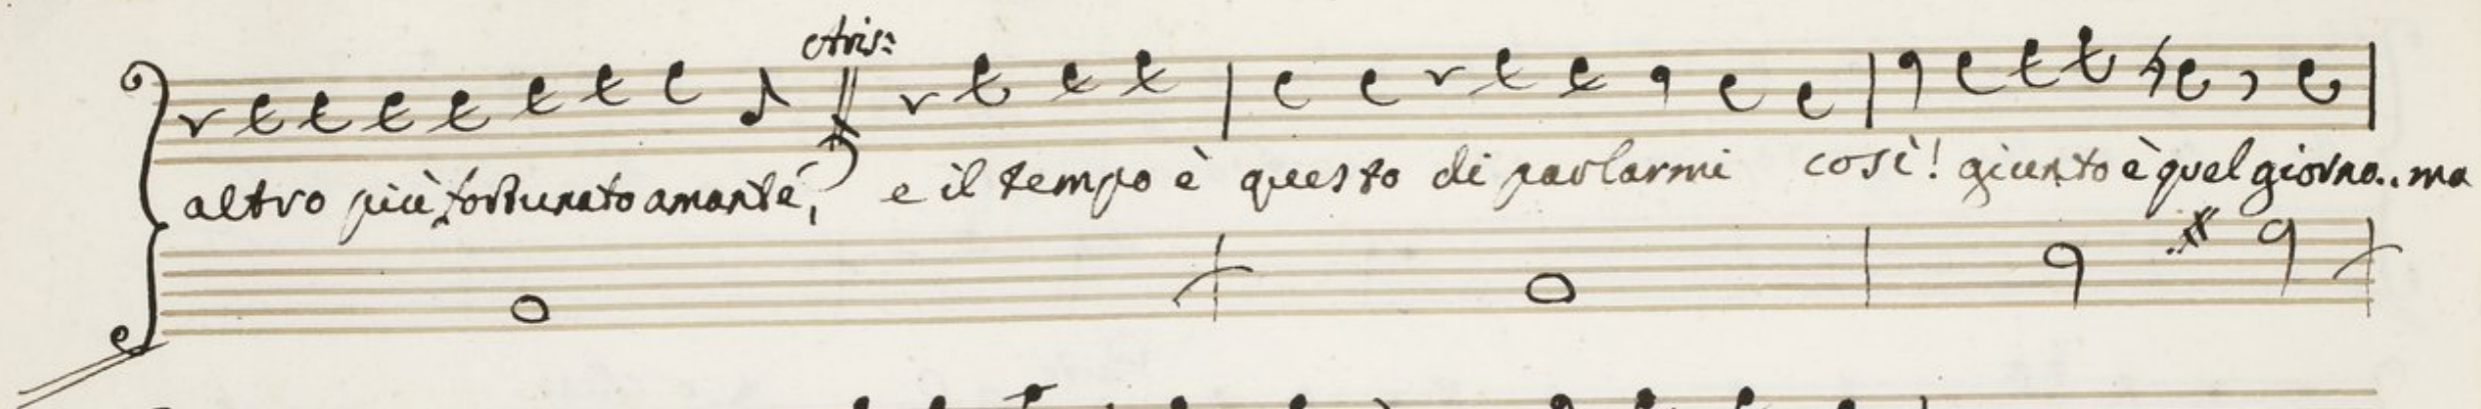 Aris:
altro più fortunato amante? e il tempo è questo di parlarmi così! giunto è quel giorno.. ma